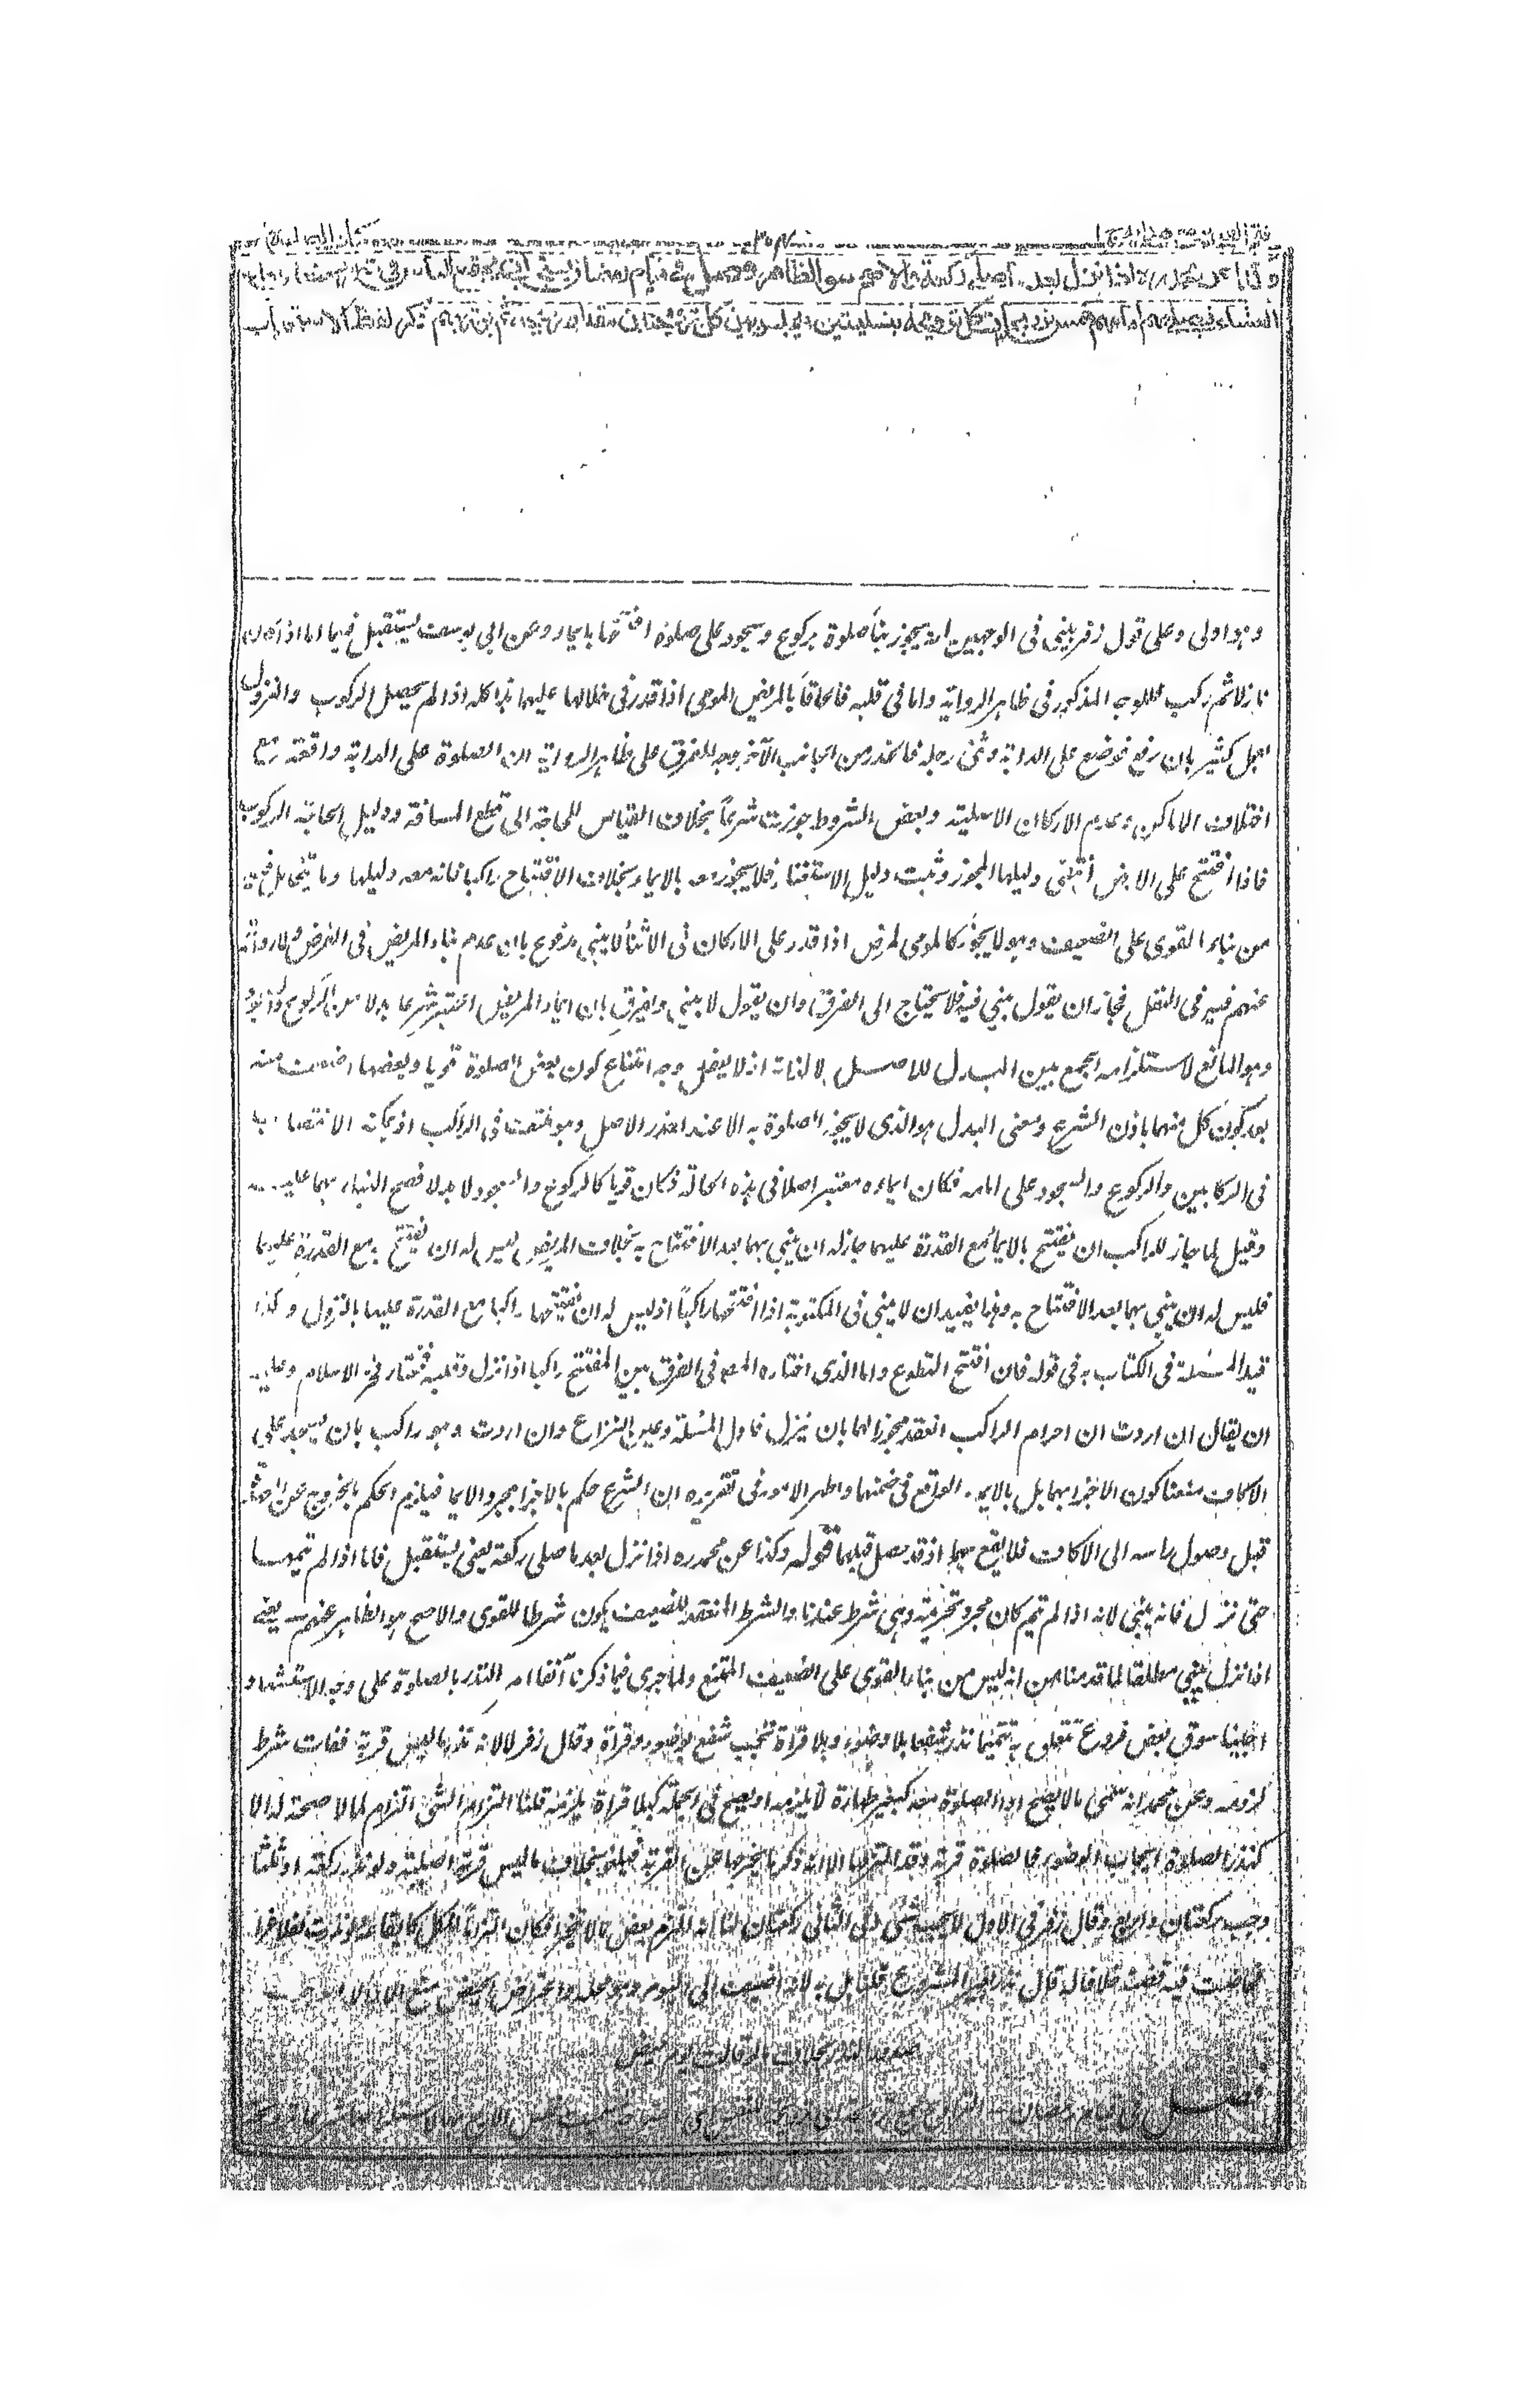 وكذا عن محمد ره اذا نزل بعد ما صلى ركعة والاصح هو الظاهر فصل في قيام رمضان يستحب ان يجتمع الناس في شهر رمضان بعد
العشاء فيصلي بهم امامهم خمس ترويحات كل ترويحة بتسليمتين ويجلس بين كل ترويحتين مقدار ترويحة ثم يوتر بهم ذكر لفظ الاستحباب
وهو اولى وعلى قول زفر يبني في الوجهين لانه يجوز بناء صلوة بركوع وسجود على صلوة افتتحها بايماء وعن ابي يوسف يستقبل فيهما اما اذا
نازلا ثم ركب للوجه المذكور في ظاهر الرواية واما في قلبه فالحاقا بالمريض المومي اذا قدر في خلالها عليهما هذا كله اذا لم يحصل الركوب والنزول
بعمل كثير بان رفع فوضع على الدابة وثنى رجله فانحدر من الجانب الآخر وجه الفرق على ظاهر الرواية ان الصلوة على الدابة واقعة مع
اختلاف الاماكن وعدم الاركان الاصلية وبعض الشروط جوزت شرعا بخلاف القياس للحاجة الى قطع المسافة ودليل الحاجة الركوب
فاذا افتتح على الارض انتفى دليلها المجوز وثبت دليل الاستغناء فلا يجوز معه بالايماء بخلاف الافتتاح راكبا فانه معه دليلها وما يتخايل فيه
من بناء القوي على الضعيف وهو لا يجوز كالمومي لمرض اذا قدر على الاركان في الاثناء لا يبني مدفوع بان عدم بناء المريض في الفرض ولا رواية
عنهم فيه في النفل فجاز ان يقول يبني فيه فلا يحتاج الى الفرق وان يقول لا يبني وافرق بان ايماء المريض اعتبر شرعا بدلا من الركوع
وهو المانع لاستلزامه الجمع بين البدل للاصل لا لذاته اذ لا يعقل وجه امتناع كون بعض الصلوة قويا وبعضها اضعف منه
بعد كون كل منهما باذن الشرع ومعنى البدل هو الذي لا يجوز الصلوة به الا عند اعذر الاصل وهو منتف في الراكب اذ يمكنه الانتصاب
في الركابين والركوع والسجود على امامه فكان ايماءه معتبر اصلا في هذه الحالة فكان قويا كالركوع والسجود لا بدلا فصح البناء بهما عليه
وقيل لما جاز للراكب ان يفتتح بالايماء مع القدرة عليهما جاز له ان يبني بهما بعد الافتتاح به بخلاف المريض ليس له ان يفتتح به مع القدرة عليهما
فليس له ان يبني بهما بعد الافتتاح به وهذا يفيد ان لا يبني في المكتوبة اذا افتتحها راكبا اذ ليس له ان يفتتحها راكبا مع القدرة عليهما بالنزول وكذا
قيد المسئلة في الكتاب به في قوله فان افتتح التطوع واما الذي اختاره المصـ في الفرق بين المفتتح راكبا اذا نزل وقلبه فمختار فخر الاسلام وعليه
ان يقال ان اردت ان احرام الراكب انعقد مجوزا لهما بان ينزل فاول المسئلة وعين النزاع وان اردت وهو راكب بان يسجد على
الاكاف منعنا كون الاجزاء بهما بل بالايماء الواقع في ضمنهما واظهر الامور في تقريره ان الشرع حكم بالاجزاء بمجرد الايماء فيلزم الحكم بالخروج عن
قبل وصول راسه الى الاكاف فلا يقع بهما اذ قد حصل قبلهما قوله وكذا عن محمد ره اذا نزل بعد ما صلى ركعة يعني يستقبل فاما اذا لم يتمها
حتى نزل فانه يبني لانه اذا لم تتم كان مجرد تحريمة وهي شرط عندنا والشرط المنعقد للضعيف يكون شرطا للقوي والاصح هو الظاهر عنهم يعني
اذا نزل يبني مطلقا لما قدمنا من انه ليس من بناء القوي على الضعيف الممتنع ولما جرى فيما ذكرنا آنفا امر النذر بالصلوة على وجه الاستشهاد
احببنا سوق بعض فروع تتعلق به تتميما نذر شفعا بلا وضوء وبلا قراءة تجب شفع بوضوء وقراءة وقال زفر لا لانه نذر بما ليس قربة ففات شرط
لزومه وعن محمد انه سمى ما لا يصح اداء الصلوة معه كبغير طهارة لا يلزمه او يصح في الجملة كبلا قراءة يلزمه قلنا التزام الشئ التزام لما لا صحة له الا
كنذر الصلوة ايجاب الوضوء فالصلوة قربة وقد التزمها الا انه ذكر ما يخرجها عن القربة فيلغو بخلاف ما ليس قربة اصلية ولو نذر ركعة او ثلثا
وجب ركعتان واربع وقال زفر في الاول لا يجب شئ وفي الثاني ركعتان لنا انه التزم بعض ما لا يتجزأ فكان التزاما لكل
فحاضت فيه قضت خلافا له قال نذر غير المشروع قلنا بل به لانه اضيف الى اليوم وهو محله واعتراض الحيض منع الاداء لا
بخلاف ما لو قالت يوم حيضي
فصل في قيام رمضان